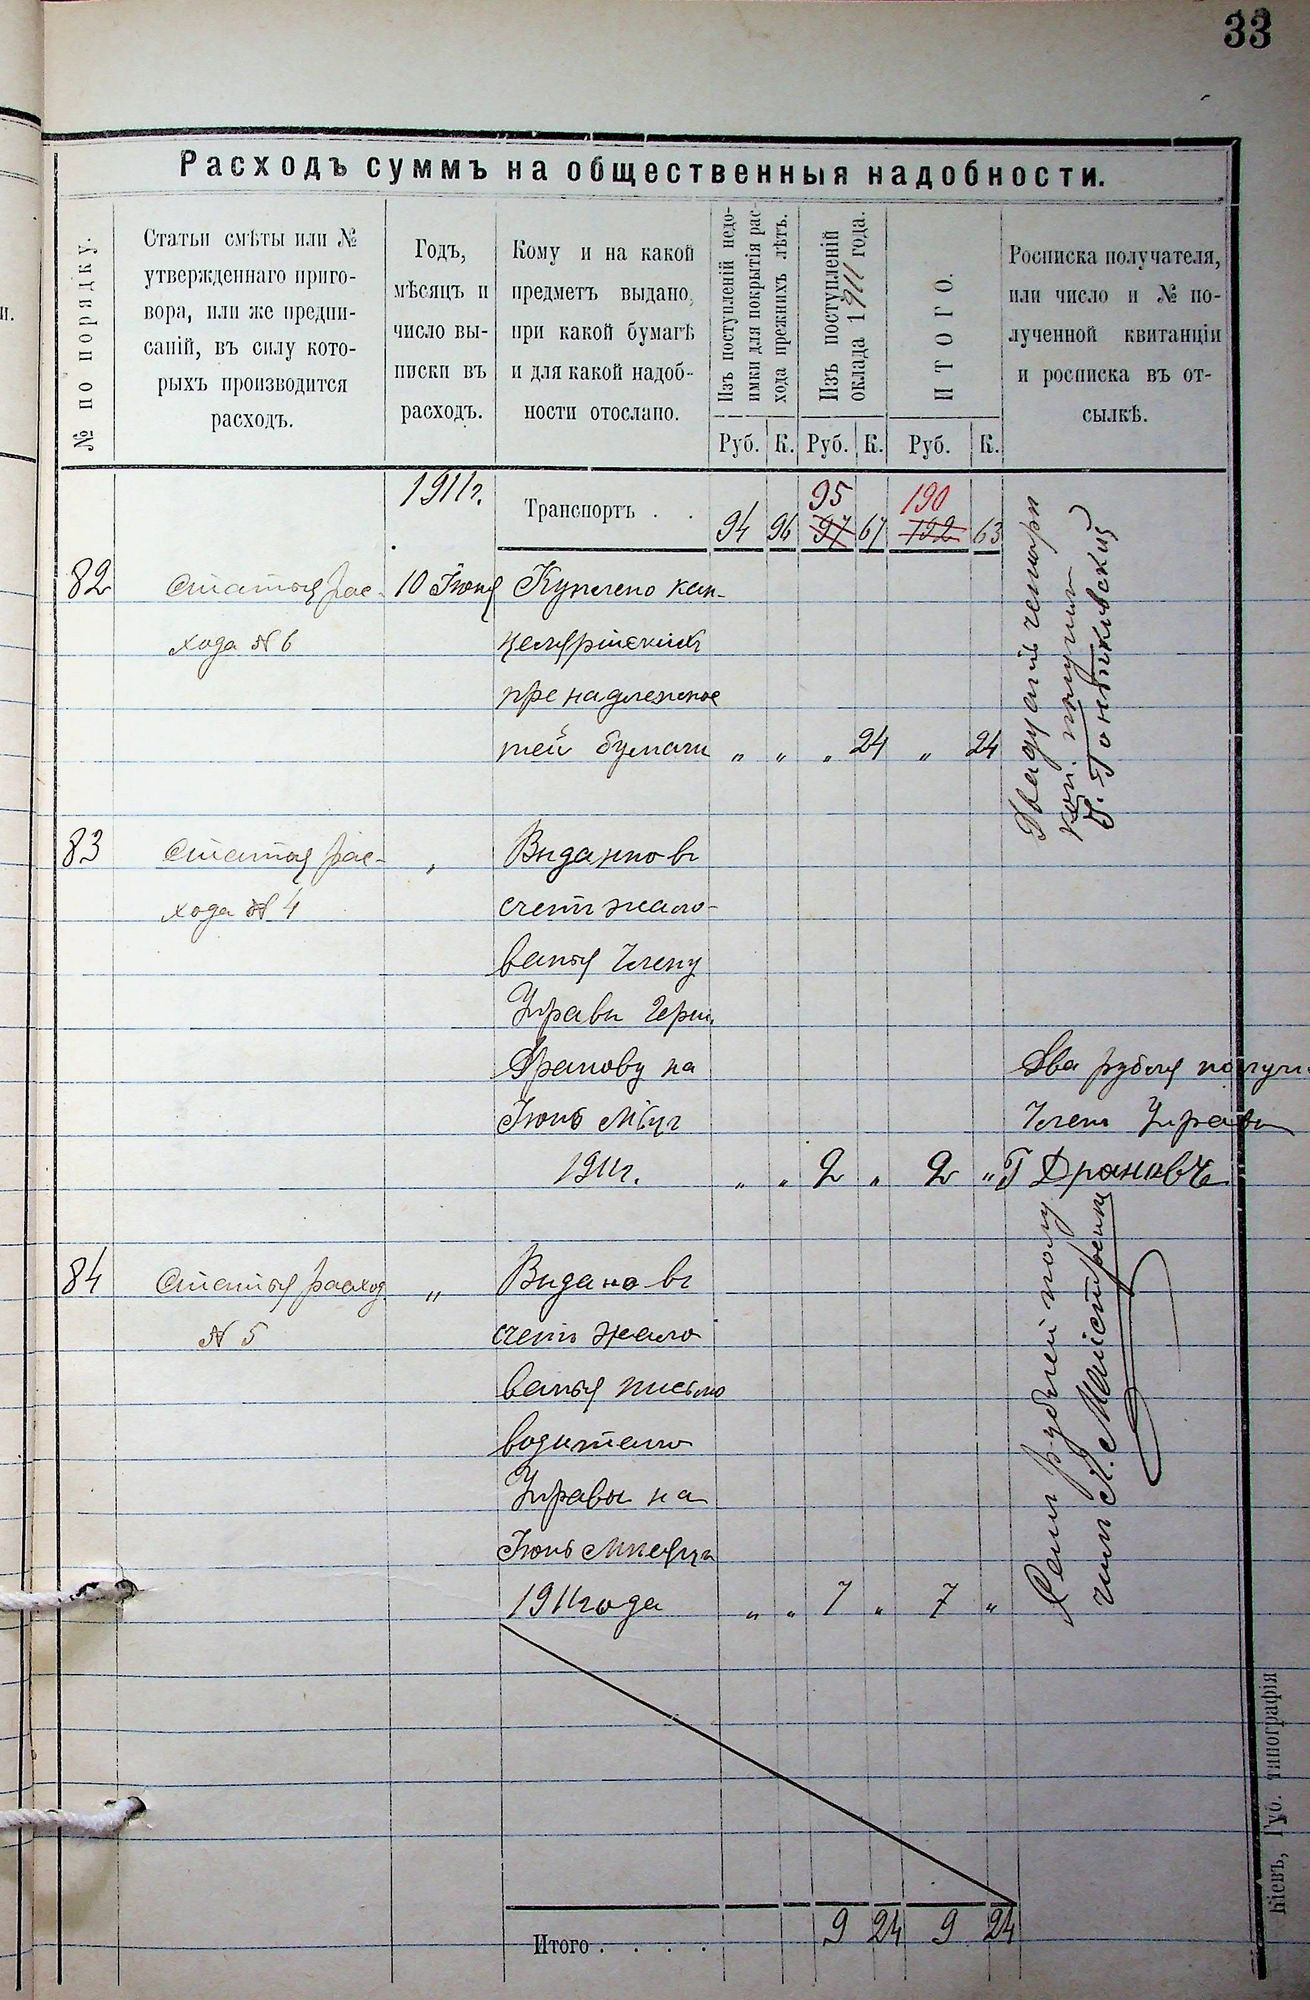 33
Расходъ суммъ на общественныя надобности.
№ по порядку.
Статьи смѣты или №
утвержденнаго приго-
вора, или же предпи-
саній, въ силу кото-
рыхъ производится
расходъ.
Годъ,
мѣсяцъ и
число вы-
писки въ
расходъ.
Кому и на какой
предметъ выдано,
при какой бумагѣ
и для какой надоб-
ности отослано.
Изъ поступленій недо-
имки для покрытія рас-
хода прежнихъ лѣтъ.
Изъ поступленій
оклада 1911 года.
ИТОГО.
Росписка получателя,
или число и № по-
лученной квитанціи
и росписка въ от-
сылкѣ.
Руб. К. Руб. К. Руб. К.
95 190
1911г. Транспортъ . . 94 96 97 67 192 63
82 Статья рас- 10 Іюня Куплено кан-
хода № 6 целяріских
пренадлежнос
тей бумаги „ „ „ 24 „ 24
Двадцать четыри
коп. получил
83 Статья рас- „ Выданно в
хода № 4 счет жало-
ванья Члену
Управы Герш.
Дранову на
Іюнь Мѣц
1911г. „ „ 2 „ 2 „
Два рубля получи
Член Управы
Г Драновъ
84 Статья расход „ Выдано в
№ 5 счетъ жало
ванья письмо
водителю
Управы на
Іюнь Месяц
1911 года „ „ 7 „ 7 „
Семь рублей полу
чил
Итого . . . . 9 24 9 24
Кіевъ, Губ. типографія